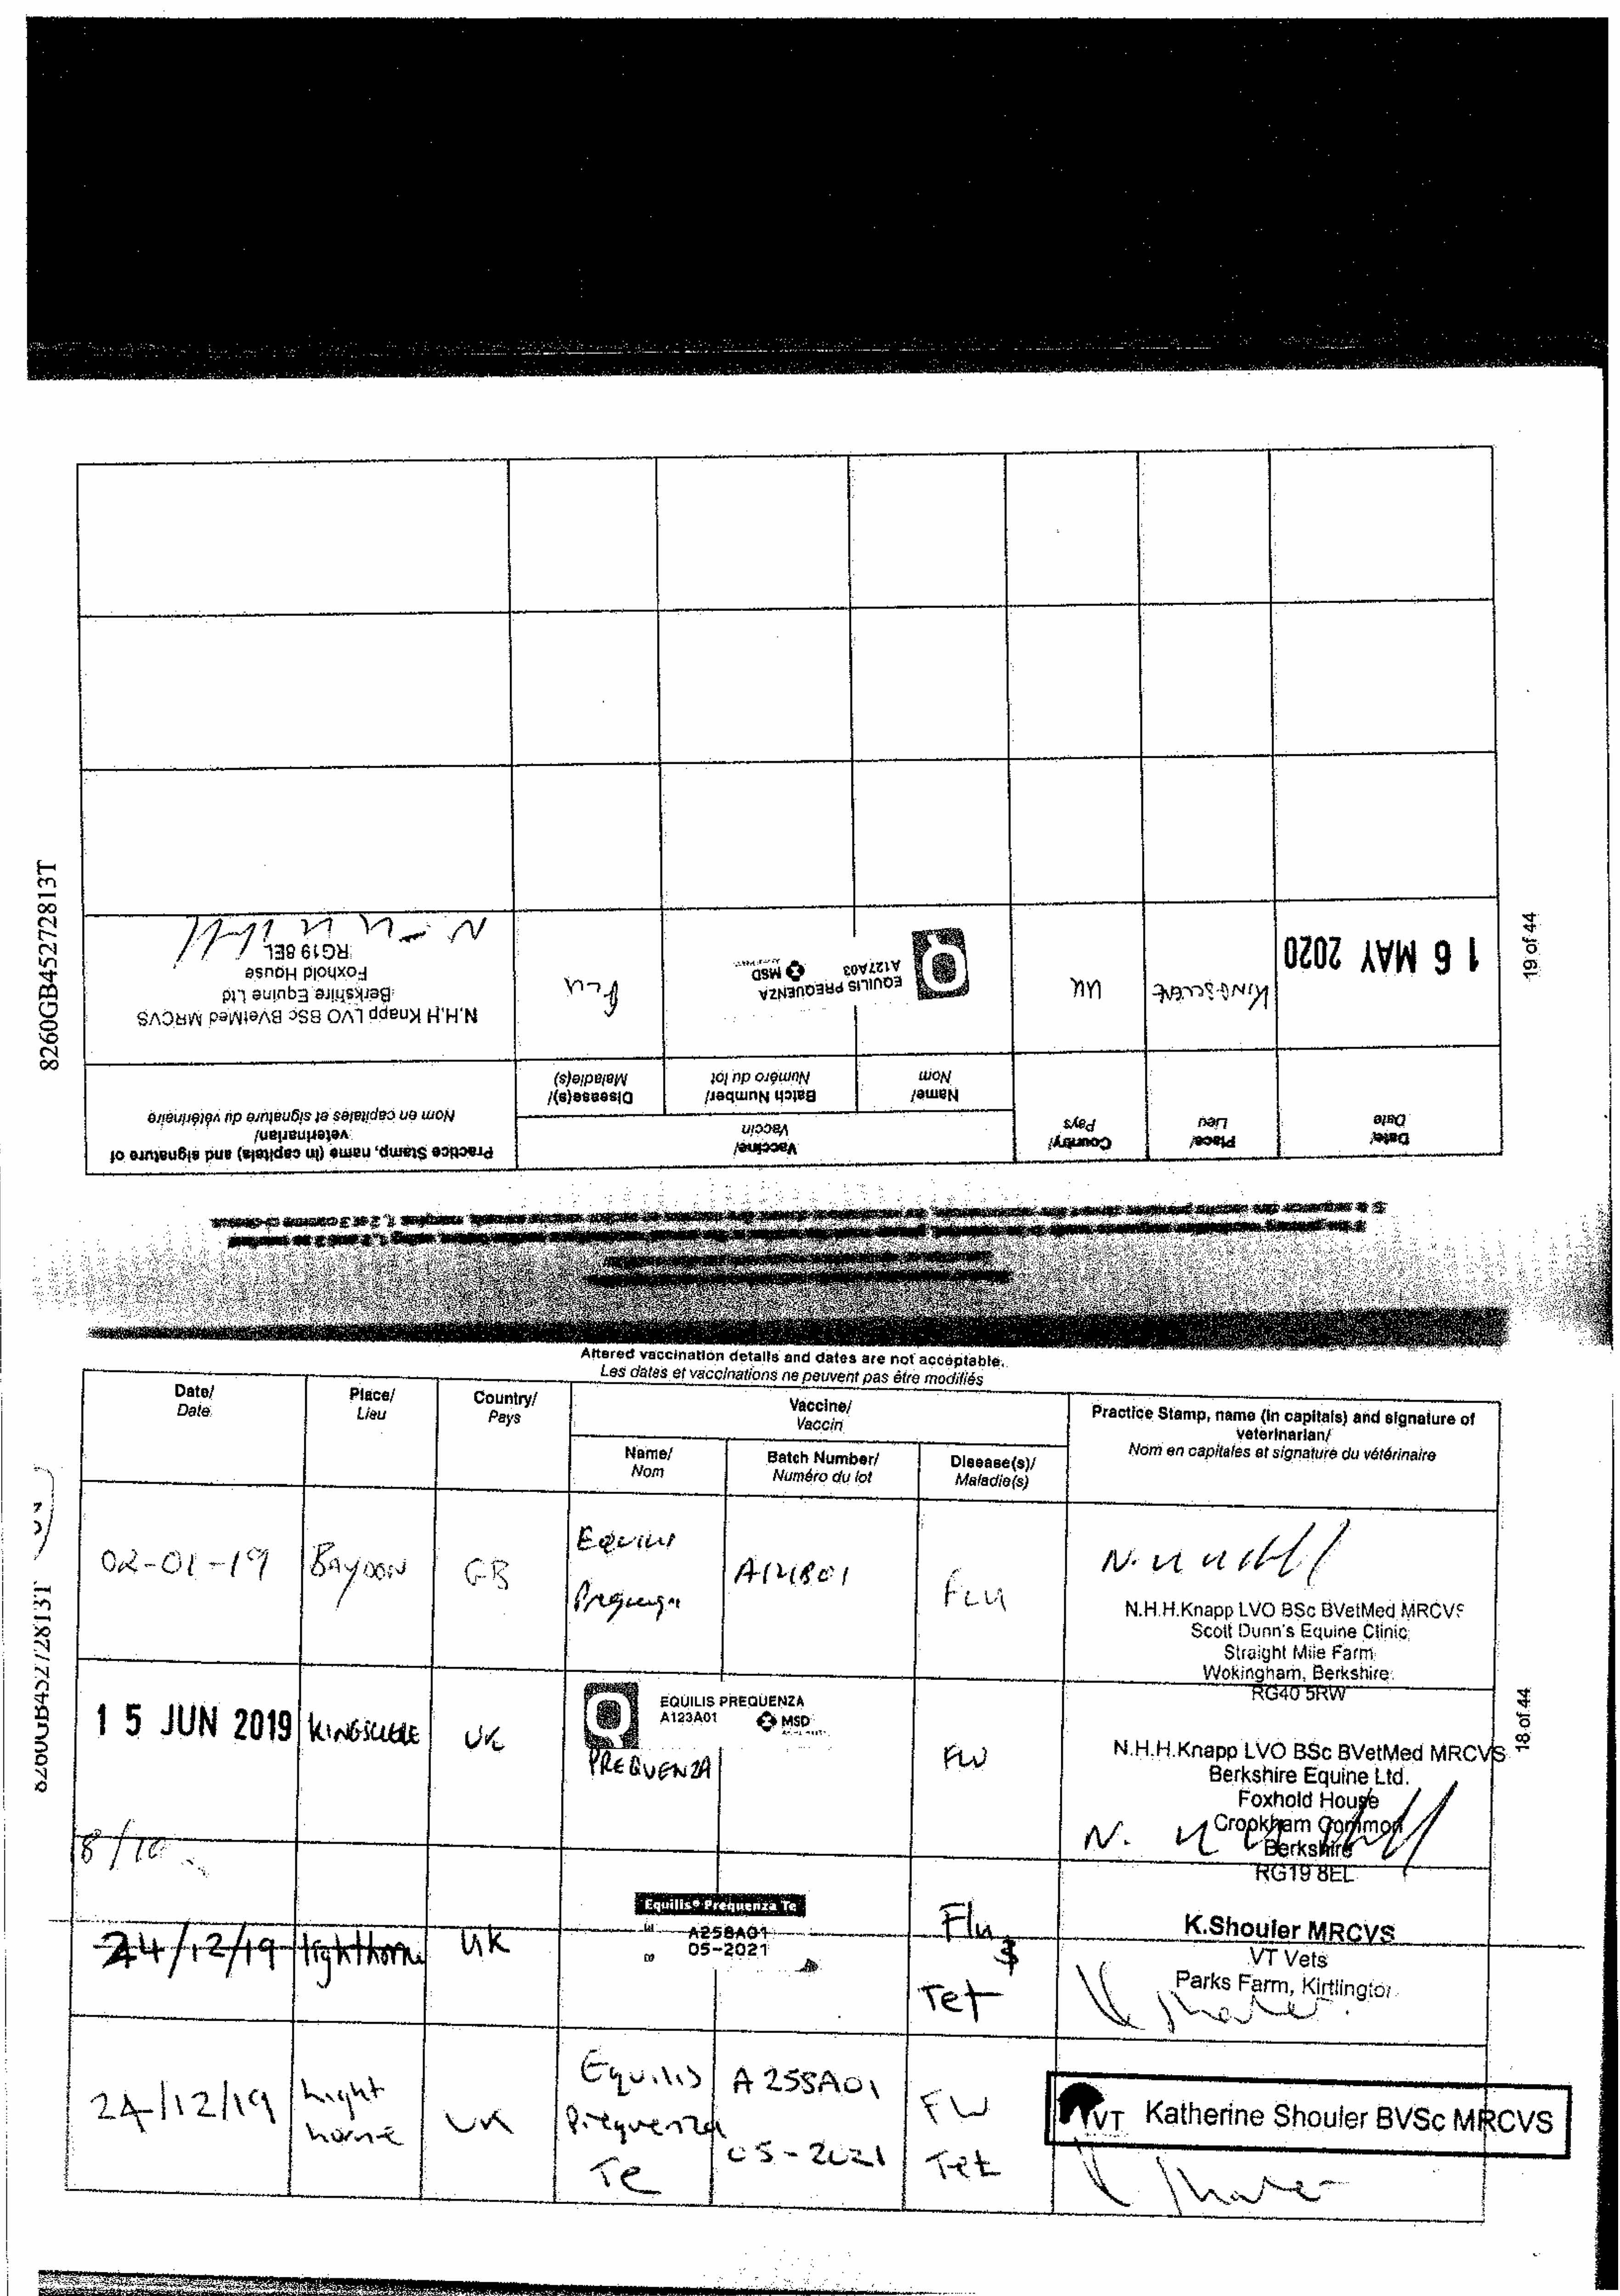 8260GB45272813T
19 of 44
Date/
Date
Place/
Lieu
Country/
Pays
Vaccine/
Vaccin
Name/
Nom
Batch Number/
Numéro du lot
Disease(s)/
Maladie(s)
Practice Stamp, name (in capitals) and signature of
veterinarian/
Nom en capitales et signature du vétérinaire
16 MAY 2020
KINGSCLERE
UK
EQUILIS PREQUENZA
A127A03
MSD
Flu
N.H.H Knapp LVO BSc BVetMed MRCVS
Berkshire Equine Ltd
Foxhold House
RG19 8EL
Altered vaccination details and dates are not acceptable.
Les dates et vaccinations ne peuvent pas être modifiés
Date/
Date
Place/
Lieu
Country/
Pays
Vaccine/
Vaccin
Name/
Nom
Batch Number/
Numéro du lot
Disease(s)/
Maladie(s)
Practice Stamp, name (in capitals) and signature of
veterinarian/
Nom en capitales et signature du vétérinaire
02-01-19
BAYDON
GB
Equilis
FLU
N.H.H.Knapp LVO BSc BVetMed MRCVS
Scott Dunn's Equine Clinic
Straight Mile Farm
Wokingham, Berkshire
RG40 5RW
15 JUN 2019
KINGSCLERE
UK
EQUILIS PREQUENZA
A123A01
MSD
PREQUENZA
FLU
N.H.H.Knapp LVO BSc BVetMed MRCVS
Berkshire Equine Ltd.
Foxhold House
Crookham Common
Berkshire
RG19 8EL
8/10
24/12/19
lighthorne
UK
Equilis® Prequenza Te
A258A01
05-2021
Flu
&
Tet
K.Shouler MRCVS
VT Vets
Parks Farm, Kirtlington
K Shouler
24/12/19
Light
horne
UK
Equilis
Prequenza
Te
A258A01
05-2021
Flu
Tet
VT Katherine Shouler BVSc MRCVS
K Shouler
18 of 44
8260GB45272813T